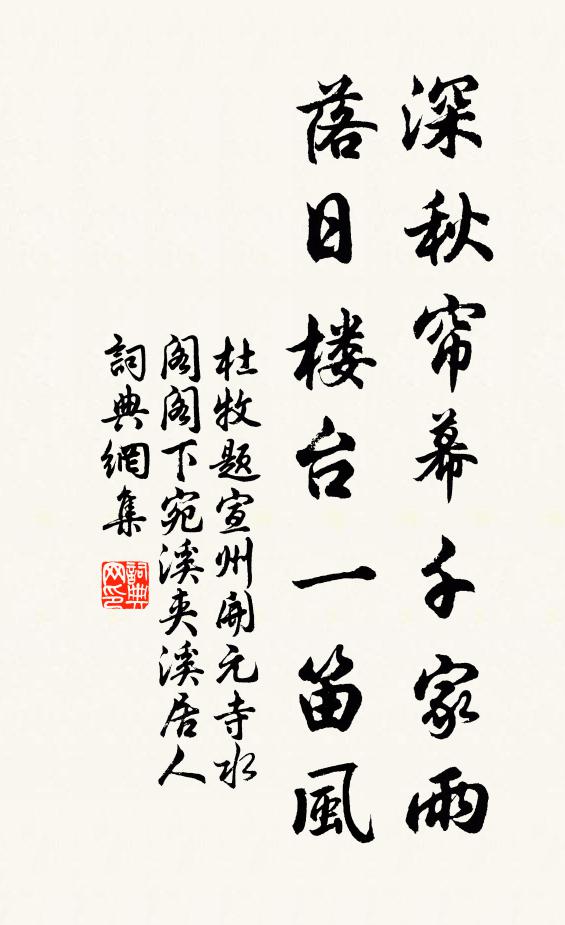 深秋帘幕千家雨
落日楼台一笛風
杜牧题宣州開元寺水
阁阁下宛溪夹溪居人
詞典網集
詞典网印